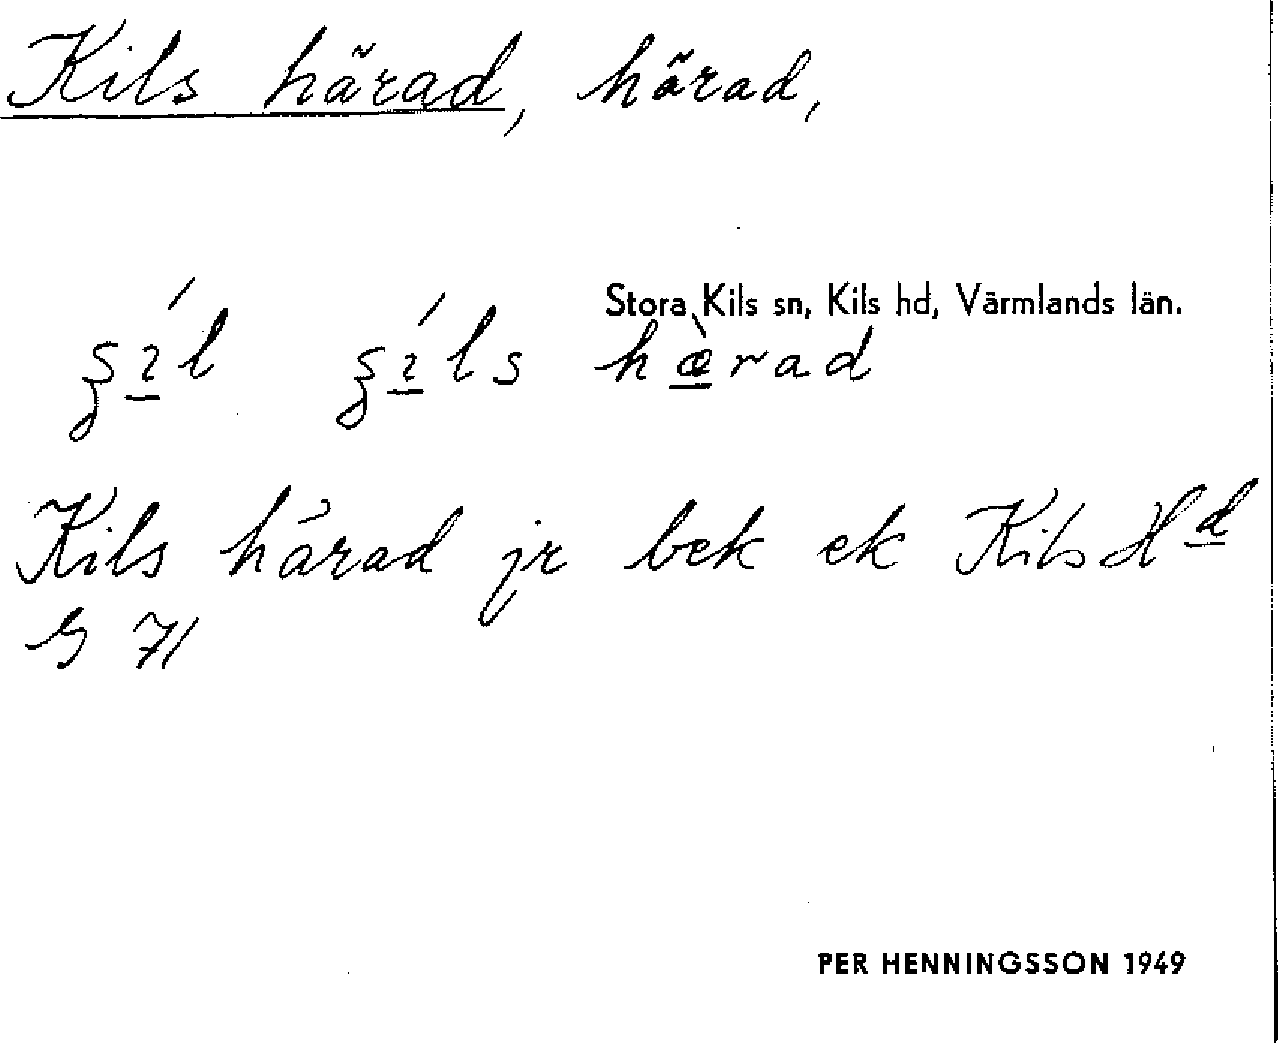 Kils härad, härad,
Stora Kils sn, Kils hd, Värmlands län.
ʂíl ʂíls hæ̀rad
Kils härad jr bek ek Kils Hd
G 71
PER HENNINGSSON 1949